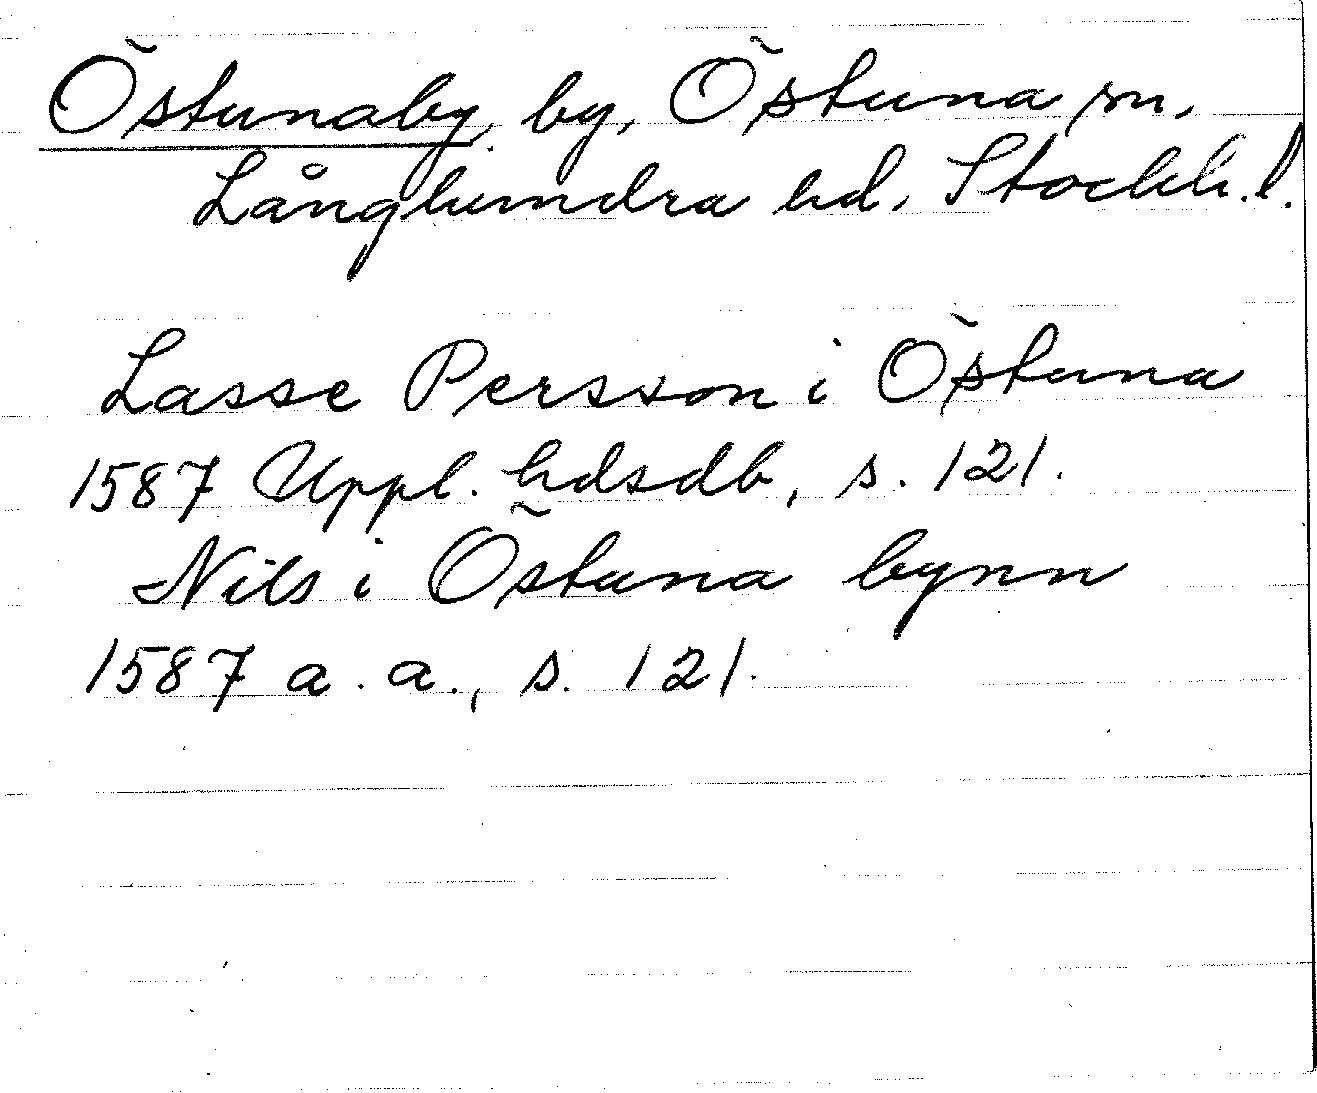 Östunaby, by, Östuna sn,
Långhundra hd, Stockh. l.
Lasse Persson i Östuna
1587 Uppl. hdsdb, s. 121.
Nils i Östuna bynn
1587 a. a., s. 121.